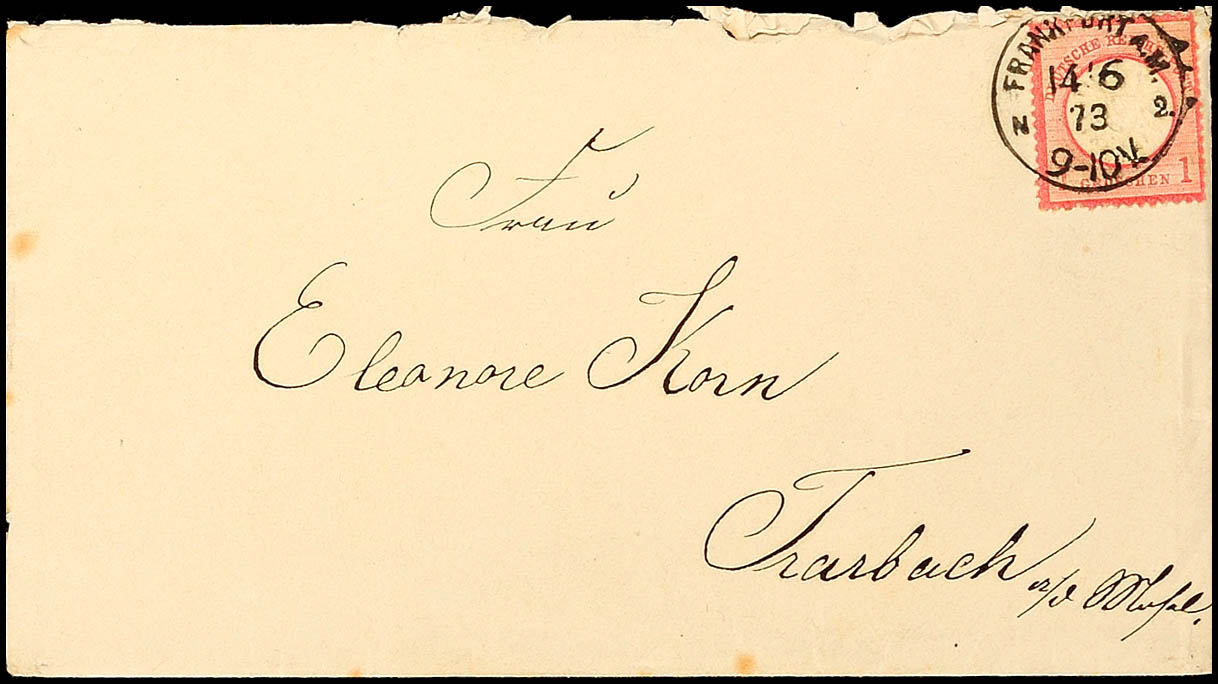 FRANKFURT A.M.
14 6
73
9-10V.
N 2.
DEUTSCHE REICHS
1 GROSCHEN 1
Frau
Eleonore Korn
Trarbach a/d Mosel.